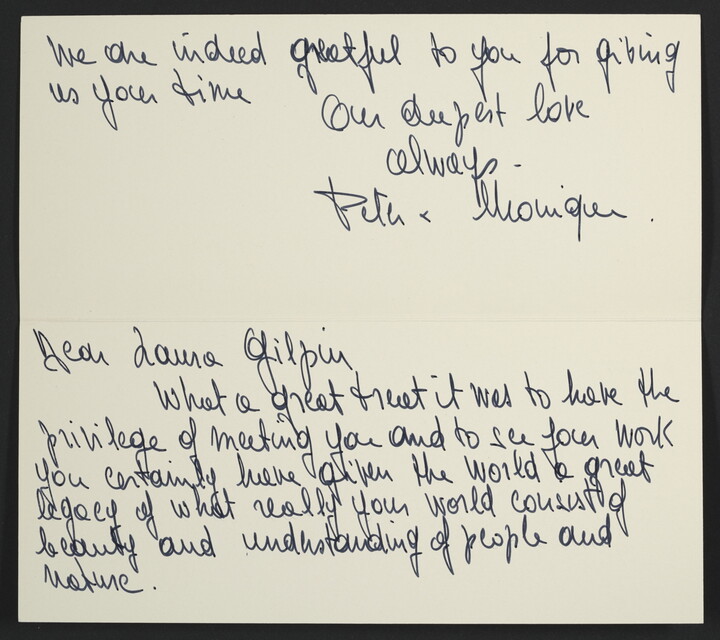 We are indeed greatful to you for giving
us your time
Our deepest love
always -
Peter & Monique .
Dear Laura Gilpin
What a great treat it was to have the
privilege of meeting you and to see your work
you certainly have given the world a great
legacy of what really your world consist of
beauty and understanding of people and
nature .